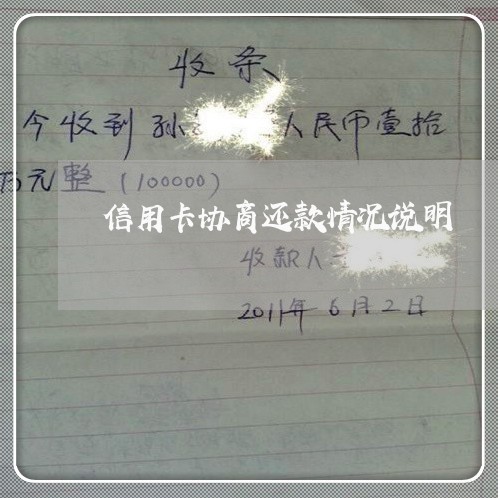 收条
今收到孙人民币壹拾
万元整（100000）
信用卡协商还款情况说明
收款人
2011年6月2日